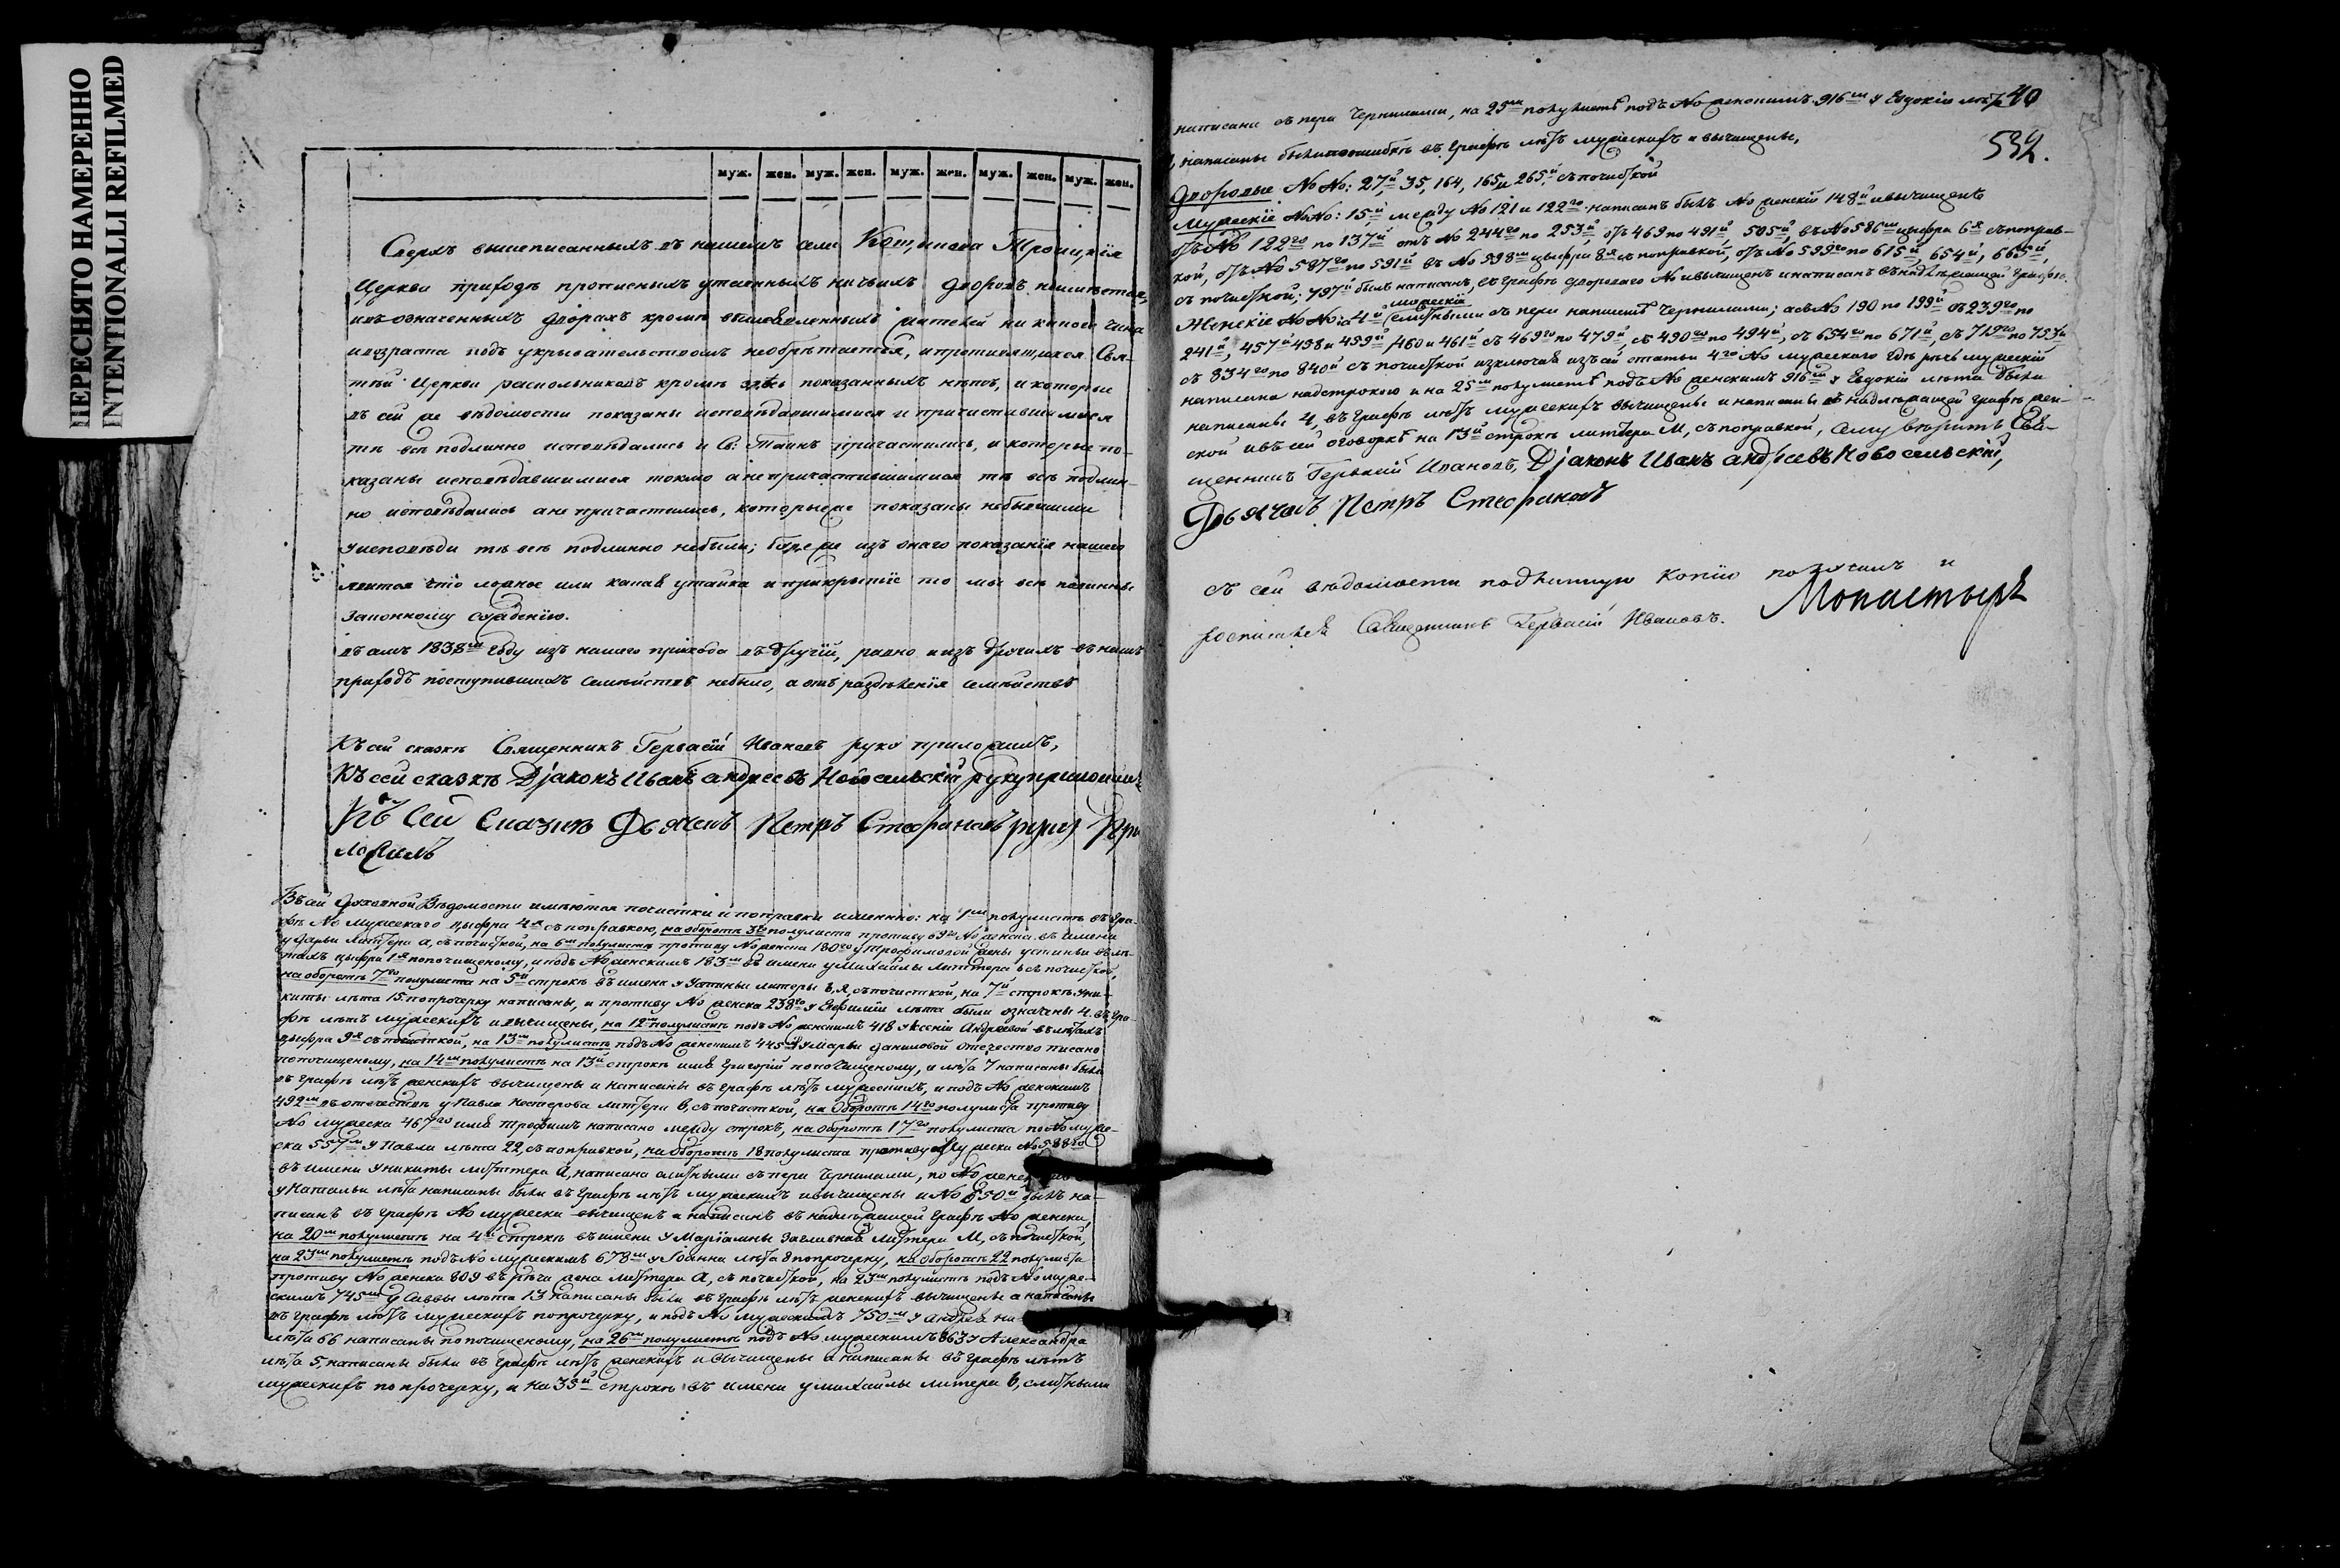 ПЕРЕСНЯТО НАМЕРЕННО
INTENTIONALLI REFILMED
муж. жен. муж. жен. муж. жен. муж. жен. муж. жен.
Сверхъ вышеписанныхъ въ нашемъ селе Троицкія
Церкви приходѣ прописныхъ утаенныхъ ничьихъ дворовъ неимѣется,
ивъ означенныхъ дворахъ кромѣ выше явленныхъ жителей ни какого чина
ивозраста подъ укрывательствомъ необрѣтается, ипротивящихся Свя-
тѣй Церкви раскольниковъ кромѣ здѣсь показанныхъ нѣтъ, и которые
въ сей же вѣдомости показаны исповѣдавшимися и причастившимися
тѣ всѣ подлинно исповѣдались и Св: Таинъ причастились, и которые по-
казаны исповѣдавшимися токмо а непричастившимися тѣ всѣ подлин-
но исповѣдались а не причастились, которые же показаны небывшими
уисповѣди тѣ всѣ подлинно небыли; буде же изъ онаго показанія нашего
явится что ложное или какая утайка и прикрытіе то мы всѣ повинны
законному сужденію.
въ семъ 1838мъ году изъ нашего прихода въ другій, равно и изъ другихъ въ нашъ
приходъ поступившихъ семѣйствъ небыло, а отъ раздѣленія семѣйствъ
Къ сей сказкѣ Священникъ Гервасій Ивановъ руку приложилъ,
Къ сей сказкѣ Діаконъ Иванъ андреевъ Новосельскій руку приложилъ
Къ Сей Сказки Дьячекъ Петръ Стефановъ руку При
ложилъ
Въ сей духовной Вѣдомости имѣются почистки и поправки именно: на 1мъ полулистѣ въ гра-
фѣ No мужескаго цыфра 4я съ поправкою, на оборотѣ 3го полулиста противу 69го No женска въ имени
у Дарьи литера а, съ почисткой, на 6мъ полулистѣ противу No женска 180го у Трофимовой жены Устиньи въ лѣ-
тахъ цыфра 1я попочищеному, и подъ No женскимъ 183мъ въ имени у Михайлы литера ъ съ почисткой,
на оборотѣ 7го полулиста на 5й строкѣ въ имени у Устиньи литеры ь, я, съ почисткой, на 7й строкѣ у Ни-
киты лѣта 15 по прочерку написаны, и противу No женска 238го у Евфиміи лѣта были означены 4 въ гра-
фѣ лѣтъ мужескихъ и вычищены, на 12мъ полулистѣ подъ No женскимъ 418 у Ксеніи Андреевой въ лѣтахъ
цыфра 9я съ почисткой, на 13мъ полулистѣ подъ No женскимъ 445 у Марьи Даниловой отечество писано
попочищеному, на 14мъ полулистѣ на 13й строкѣ имя Григорій попочищеному, и лѣта 7 написаны были
въ графѣ лѣтъ женскихъ вычищены и написаны въ графѣ лѣтъ мужескихъ, и подъ No женскимъ
492мъ въ отечествѣ у Павла Нестерова литера в, съ почисткой, на оборотѣ 14го полулиста противу
No мужеска 467го имя Трофимъ написано между строкъ, на оборотѣ 17го полулиста по No муже-
ска 557му у Павла лѣта 22, съ поправкой, на оборотѣ 18 полулиста противу мужеска No 588го
въ имени у Никиты литера а, написана слитными съ пера чернилами, по No женск
у Натальи лѣта написаны были въ графѣ лѣтъ мужескихъ ивычищены и No 650й былъ на-
писанъ въ графѣ No мужеска вычищенъ и написанъ въ надлежащей графѣ No женска,
на 20мъ полулистѣ на 4й строкѣ въ имени у Маріамны заглавная литера М, съ почисткой,
на 23мъ полулистѣ подъ No мужескимъ 678мъ у Іоанна лѣта 8 попрочерку, на оборотѣ 22 полулиста
противу No женска 809 въ рѣчи жена литера а, съ почисткой, на 23мъ полулистѣ подъ No муже-
скимъ 745мъ у Саввы лѣта 13 написаны были въ графѣ лѣтъ женскихъ вычищены а написаны
въ графѣ лѣтъ мужескихъ попрочерку, и подъ No мужескимъ 750мъ у Андрея
лѣта 66 написаны попочищеному, на 26мъ полулистѣ подъ No мужескимъ 863 у Александра
лѣта 5, написаны были въ графѣ лѣтъ женскихъ и вычищены а написаны въ графѣ лѣтъ
мужескихъ по прочерку, и на 35й строкѣ въ имени у Михайлы литера в, слитными
написана съ пера чернилами, на 25мъ полулистѣ подъ No женскимъ 916мъ у Евдокіи лѣта
40
написаны были по ошибкѣ въ графѣ лѣтъ мужескихъ и вычищены,
532.
Дворовые No No: 27й, 35, 164, 165 и 265й съ почисткой
Мужескіе No No: 15й между No 121 и 122го написанъ былъ No женскій 148й ивычищенъ
отъ No 122го по 137й отъ No 244го по 253й, отъ 469 по 491й 505й, въ No 586мъ цыфра 6я съ поправ-
кой, отъ No 587го по 591й въ No 598мъ цыфра 8я съ поправкой, отъ No 599го по 615й, 654й, 665й,
съ почисткой; 797й былъ написанъ, въ графѣ двороваго No ивычищенъ и написанъ въ надлежащей графѣ.
мужескій
Женскіе No No: а 4й слитными съ пера написанъ чернилами; а съ No 190 по 199й съ 239го по
241й, 457й 458 и 459й, 460 и 461й съ 469го по 479й, съ 490го по 494й, съ 654го по 671й, съ 719го по 753й
съ 834го по 840й съ почисткой изключая изъ сей статьи 4го No мужескаго гдѣ рѣчь мужескій
написана надстрокою и на 25мъ полулистѣ подъ No женскимъ 916мъ у Евдокіи лѣта были
написаны 4, въ графѣ лѣтъ мужескихъ вычищены и написаны въ надлежащей графѣ жен-
ской ивъ сей оговоркѣ на 13й строкѣ литера М, съ поправкой, сему вѣрить Свя-
щенникъ Гервасій Ивановъ, Діаконъ Иванъ андреевъ Новосельскій,
Дьячекъ Петръ Стефановъ
Съ сей вѣдомости подлинную копію получилъ и
росписался Священникъ Гервасій Ивановъ. Монастырь